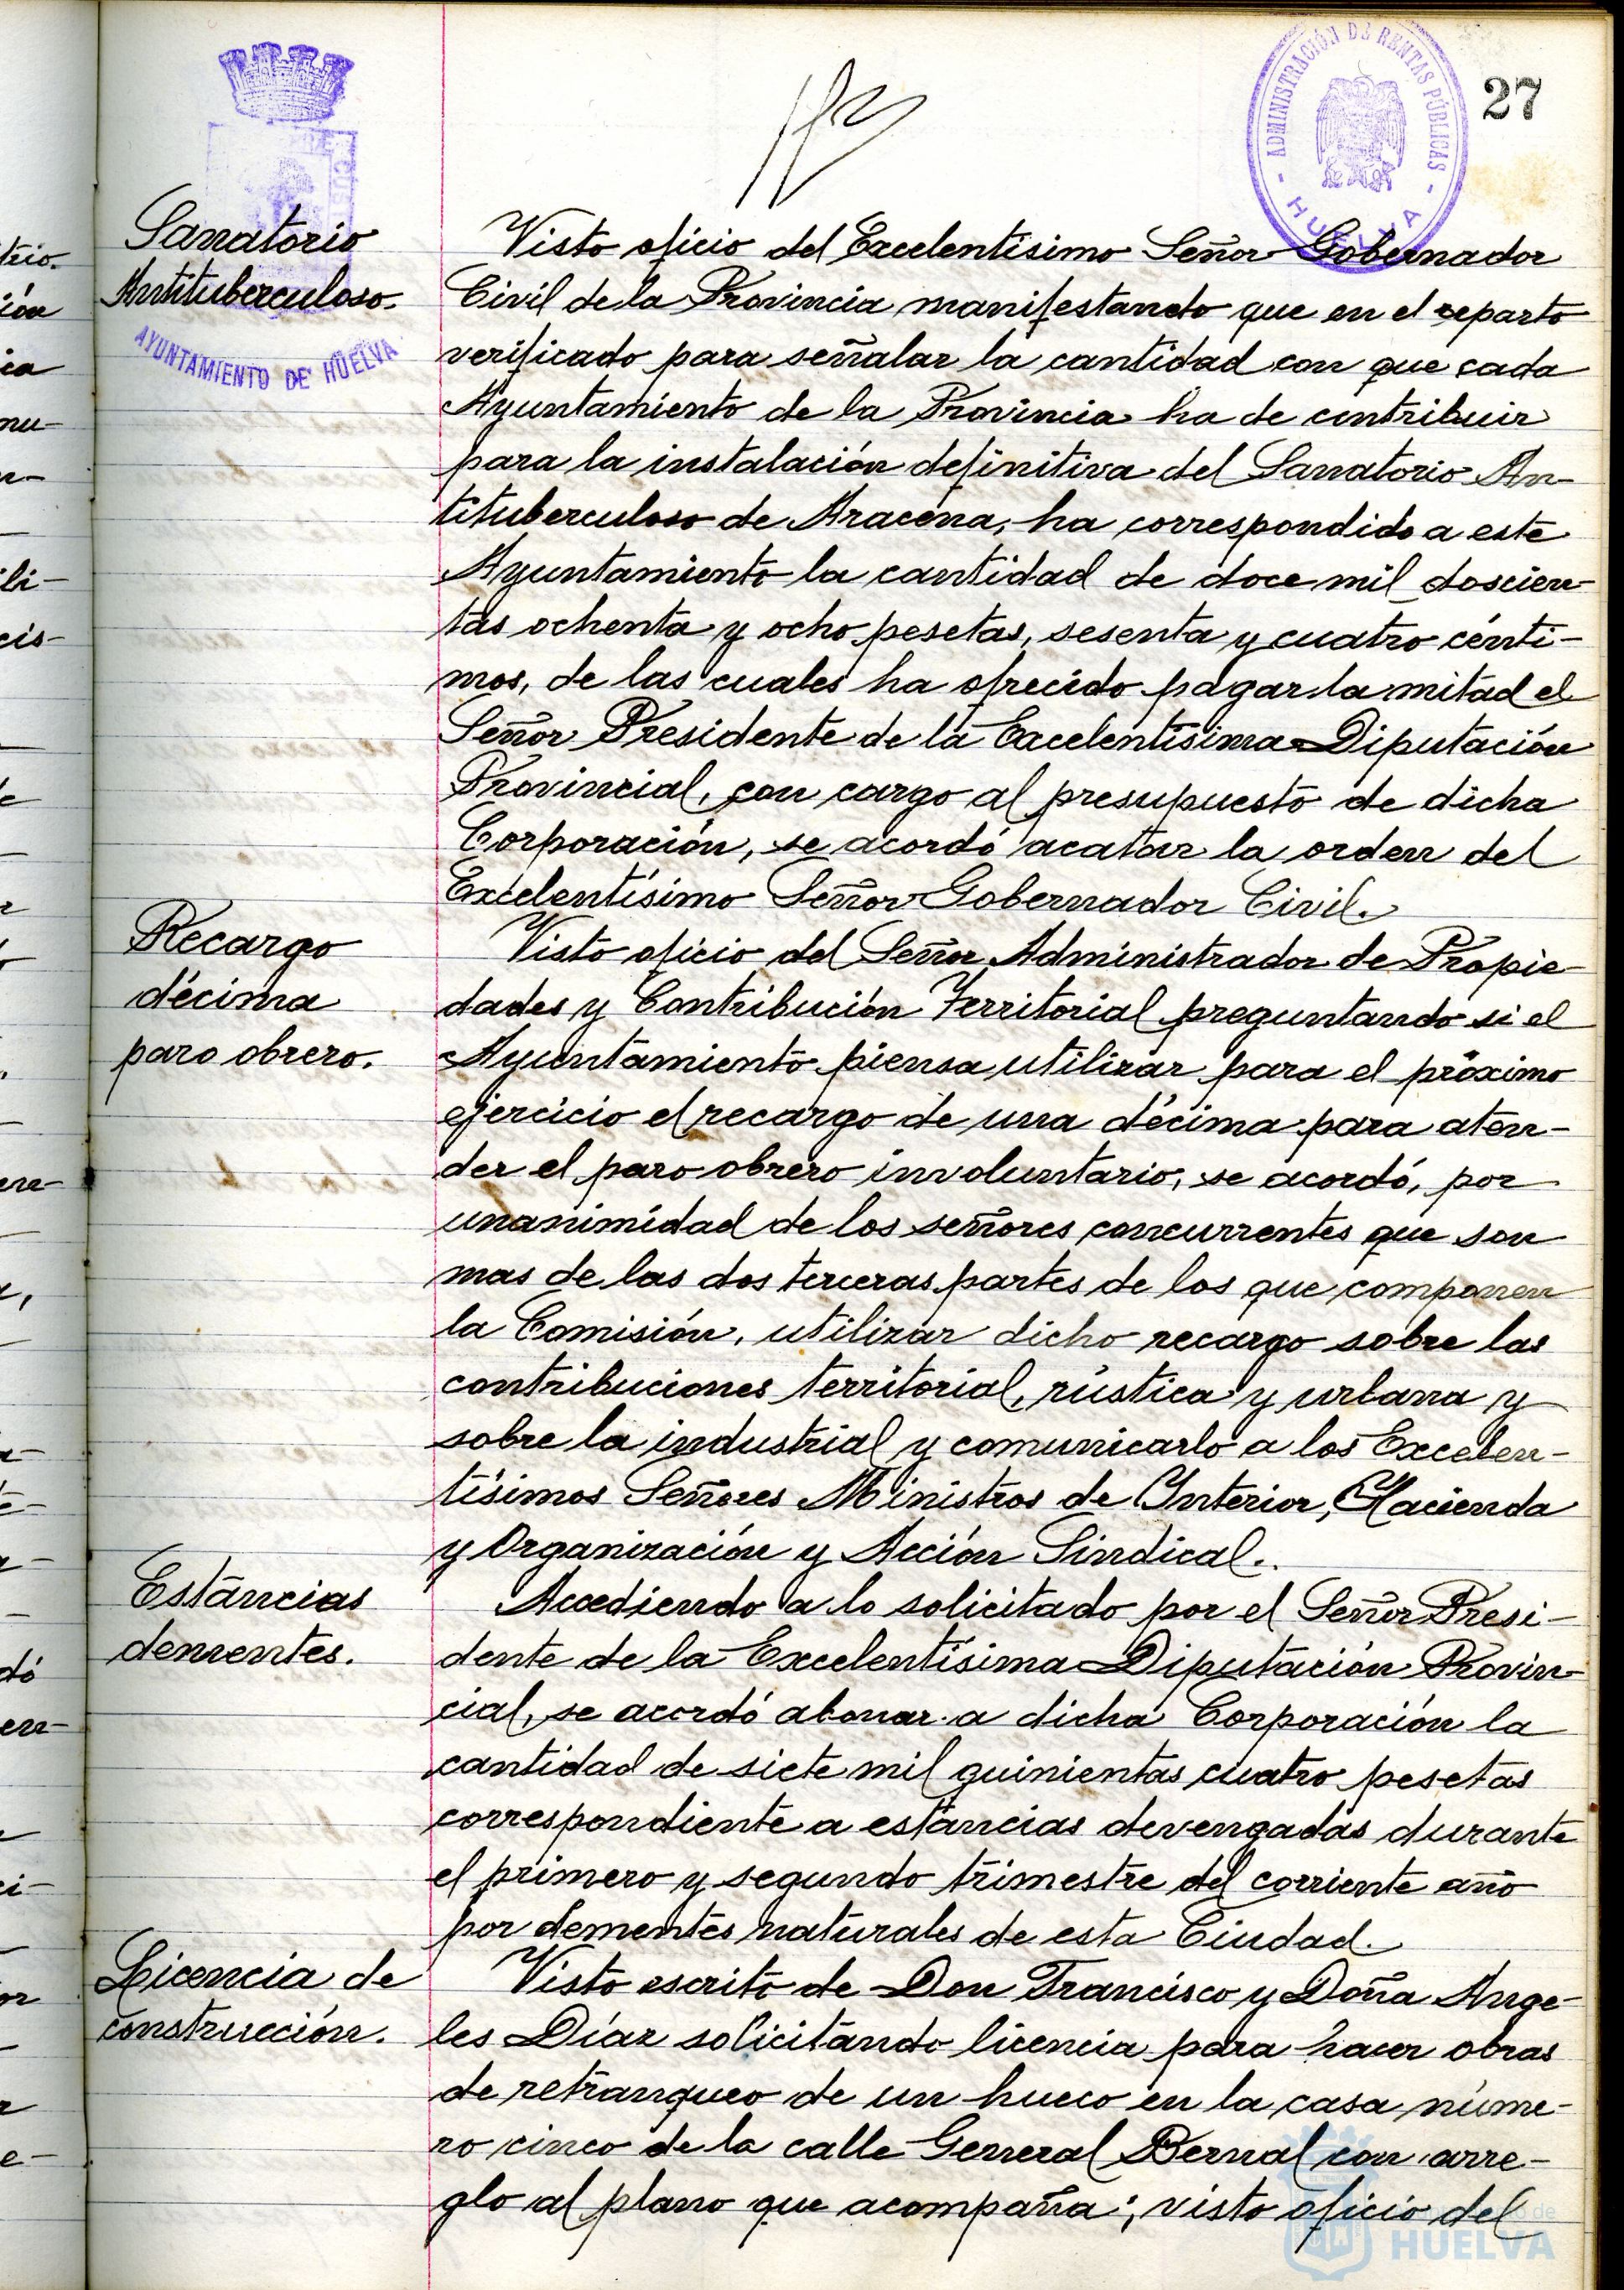 27
ADMINISTRACIÓN DE RENTAS PÚBLICAS
- HUELVA -
AYUNTAMIENTO DE HUELVA
Sanatorio
Antituberculoso.
Visto oficio del Excelentísimo Señor Gobernador
Civil de la Provincia manifestando que en el reparto
verificado para señalar la cantidad con que cada
Ayuntamiento de la Provincia ha de contribuir
para la instalación definitiva del Sanatorio An-
tituberculoso de Aracena, ha correspondido a este
Ayuntamiento la cantidad de doce mil doscien-
tas ochenta y ocho pesetas, sesenta y cuatro cénti-
mos, de las cuales ha ofrecido pagar la mitad el
Señor Presidente de la Excelentísima Diputación
Provincial, con cargo al presupuesto de dicha
Corporación, se acordó acatar la orden del
Excelentísimo Señor Gobernador Civil.
Recargo
décima
paro obrero.
Visto oficio del Señor Administrador de Propie-
dades y Contribución Territorial preguntando si el
Ayuntamiento piensa utilizar para el próximo
ejercicio el recargo de una décima para aten-
der el paro obrero involuntario, se acordó, por
unanimidad de los señores concurrentes que son
mas de las dos terceras partes de los que componen
la Comisión, utilizar dicho recargo sobre las
contribuciones territorial, rústica y urbana y
sobre la industrial y comunicarlo a los Excelen-
tísimos Señores Ministros de Interior, Hacienda
y Organización y Acción Sindical.
Estancias
dementes.
Accediendo a lo solicitado por el Señor Presi-
dente de la Excelentísima Diputación Provin-
cial, se acordó abonar a dicha Corporación la
cantidad de siete mil quinientas cuatro pesetas
correspondiente a estancias devengadas durante
el primero y segundo trimestre del corriente año
por dementes naturales de esta Ciudad.
Licencia de
construcción.
Visto escrito de Don Francisco y Doña Ange-
les Díaz solicitando licencia para hacer obras
de retranqueo de un hueco en la casa núme-
ro cinco de la calle General Bernal con arre-
glo al plano que acompaña; visto oficio del
HUELVA